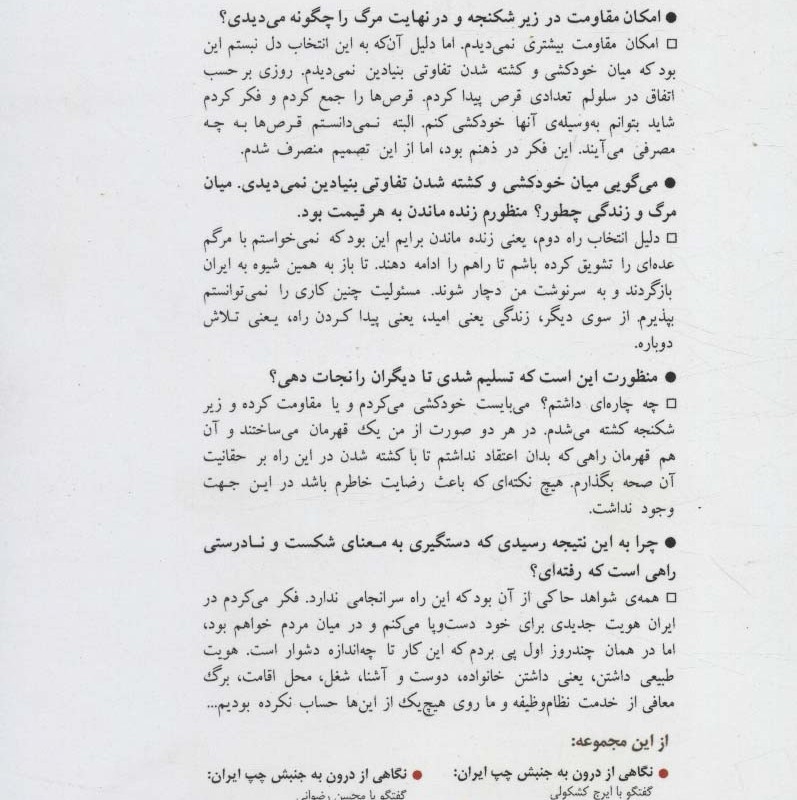 ● امکان مقاومت در زیر شکنجه و در نهایت مرگ را چگونه می‌دیدی؟
□ امکان مقاومت بیشتری نمی‌دیدم. اما دلیل آن‌که به این انتخاب دل نبستم این
بود که میان خودکشی و کشته شدن تفاوتی بنیادین نمی‌دیدم. روزی بر حسب
اتفاق در سلولم تعدادی قرص پیدا کردم. قرص‌ها را جمع کردم و فکر کردم
شاید بتوانم به‌وسیله‌ی آنها خودکشی کنم. البته نمی‌دانستم قرص‌ها به چه
مصرفی می‌آیند. این فکر در ذهنم بود، اما از این تصمیم منصرف شدم.
● می‌گویی میان خودکشی و کشته شدن تفاوتی بنیادین نمی‌دیدی. میان
مرگ و زندگی چطور؟ منظورم زنده ماندن به هر قیمت بود.
□ دلیل انتخاب راه دوم، یعنی زنده ماندن برایم این بود که نمی‌خواستم با مرگم
عده‌ای را تشویق کرده باشم تا راهم را ادامه دهند. تا باز به همین شیوه به ایران
بازگردند و به سرنوشت من دچار شوند. مسئولیت چنین کاری را نمی‌توانستم
بپذیرم. از سوی دیگر، زندگی یعنی امید، یعنی پیدا کردن راه، یعنی تلاش
دوباره.
● منظورت این است که تسلیم شدی تا دیگران را نجات دهی؟
□ چه چاره‌ای داشتم؟ می‌بایست خودکشی می‌کردم و یا مقاومت کرده و زیر
شکنجه کشته می‌شدم. در هر دو صورت از من یک قهرمان می‌ساختند و آن
هم قهرمان راهی که بدان اعتقاد نداشتم تا با کشته شدن در این راه بر حقانیت
آن صحه بگذارم. هیچ نکته‌ای که باعث رضایت خاطرم باشد در این جهت
وجود نداشت.
● چرا به این نتیجه رسیدی که دستگیری به معنای شکست و نادرستی
راهی است که رفته‌ای؟
□ همه‌ی شواهد حاکی از آن بود که این راه سرانجامی ندارد. فکر می‌کردم در
ایران هویت جدیدی برای خود دست‌وپا می‌کنم و در میان مردم خواهم بود،
اما در همان چندروز اول پی بردم که این کار تا چه‌اندازه دشوار است. هویت
طبیعی داشتن، یعنی داشتن خانواده، دوست و آشنا، شغل، محل اقامت، برگ
معافی از خدمت نظام‌وظیفه و ما روی هیچ‌یک از این‌ها حساب نکرده بودیم...
از این مجموعه:
● نگاهی از درون به جنبش چپ ایران:
گفتگو با ایرج کشکولی
● نگاهی از درون به جنبش چپ ایران:
گفتگو با محسن رضوانی